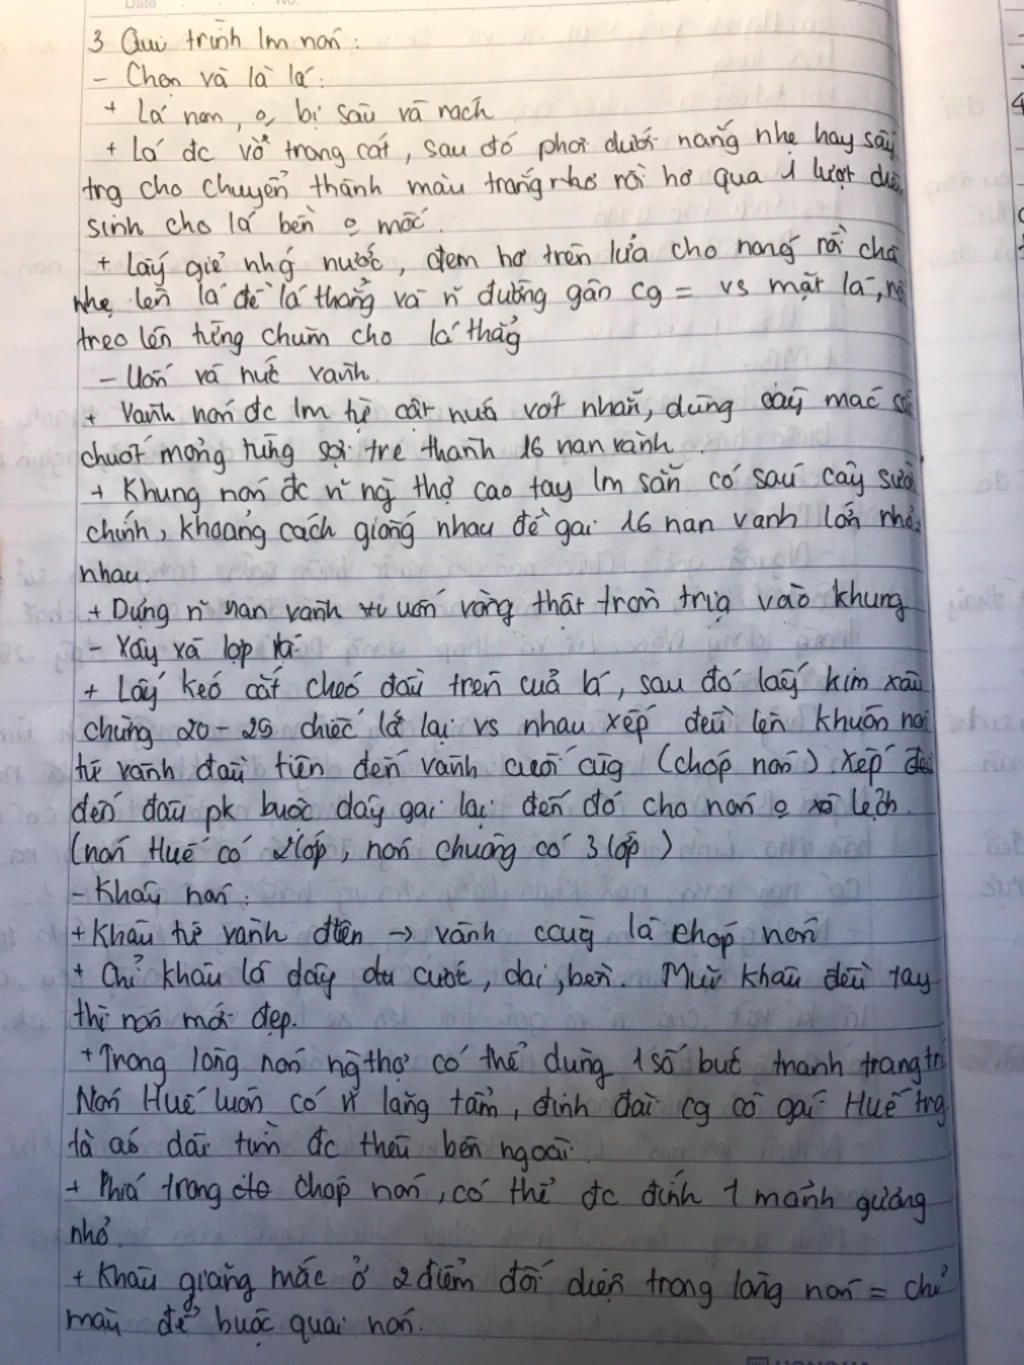 Date No.
3 Qui trình lm nón:
- Chọn và là lá:
+ Lá non, o bị sâu và rách
+ Lá đc vò trong cát, sau đó phơi dưới nắng nhẹ hay sấy
trg cho chuyển thành màu trắng rồi hơ qua 1 lượt
sinh cho lá bền o mốc.
+ Lấy giẻ nhg nước, đem hơ trên lửa cho nóng rồi chà
nhẹ lên lá để lá thẳng và n đường gân cg = vs mặt lá,
treo lên từng chùm cho lá thẳg
- Uốn và nức vành
+ Vành nón đc lm từ cật nứa vót nhẵn, dùng
chuốt mỏng từng sợi tre thành 16 nan vành.
+ Khung nón đc n ng thợ cao tay lm sẵn có sáu cây sườn
chính, khoảng cách giống nhau để gài 16 nan vành lớn nhỏ
nhau.
+ Dựng n nan vành uốn vòng thật tròn trịa vào khung
- Xây và lợp lá
+ Lấy kéo cắt chéo đầu trên của lá, sau đó lấy kim xâu
chừng 20-25 chiếc lá lại vs nhau xếp đều lên khuôn nón
từ vành đầu tiên đến vành cuối cùg (chóp nón). Xếp
đến đâu pk buộc dây gài lại đến đó cho nón o xô lệch.
(nón Huế có 2 lớp, nón chuông có 3 lớp)
- Khâu nón:
+ Khâu từ vành đtiên → vành ccùg là chóp nón
+ Chỉ khâu là dây cước, dai, bền. Mũi khâu đều tay
thì nón mới đẹp.
+ Trong lòng nón ng thợ có thể dùng 1 số bức tranh trang trí
Nón Huế luôn có n lăng tẩm, đình đài cg cô gái Huế trg
tà áo dài tím đc thêu bên ngoài.
+ Phía trong chóp nón, có thể đc đính 1 mảnh gương
nhỏ.
+ Khâu giăng mắc ở 2 điểm đối diện trong lòng nón = chỉ
màu để buộc quai nón.